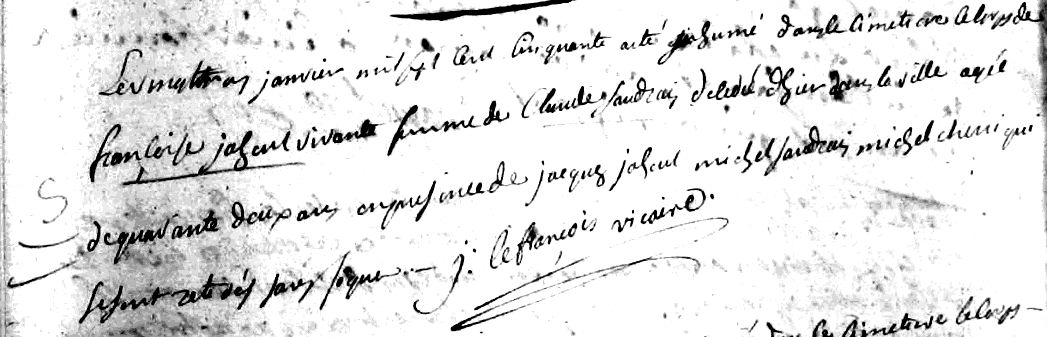 Le vingt trois janvier mil sept cent cinquante a eté inhumé dans le cimetiere le corps de
françoise jahcul vivante femme de Claude saudrais decedé d'hier dans la ville agée
de quarante deux ans en presence de jacques jahcul michel saudrais michel chenu qui
se sont retirés sans signer. — j. lefrançois vicaire.
le cimetiere le corps